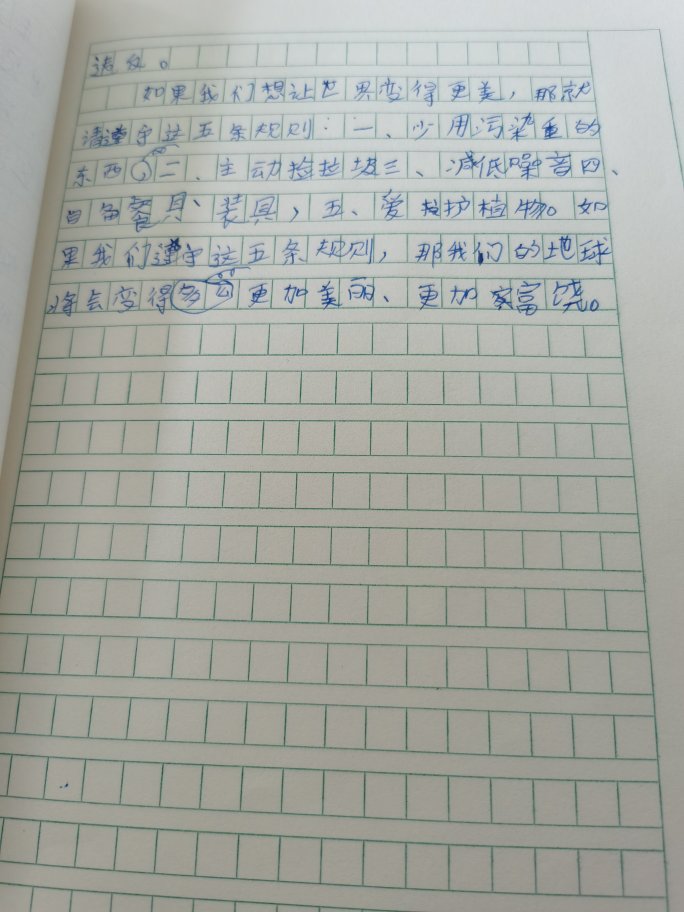 如果我们想让世界变得更美，那就
请遵守这五条规则：一、少用污染重的
东西，二、主动捡垃圾三、减低噪音四、
自备餐具、装具，五、爱护植物。如
果我们遵守这五条规则，那我们的地球
将会变得更加美丽、更加富饶。